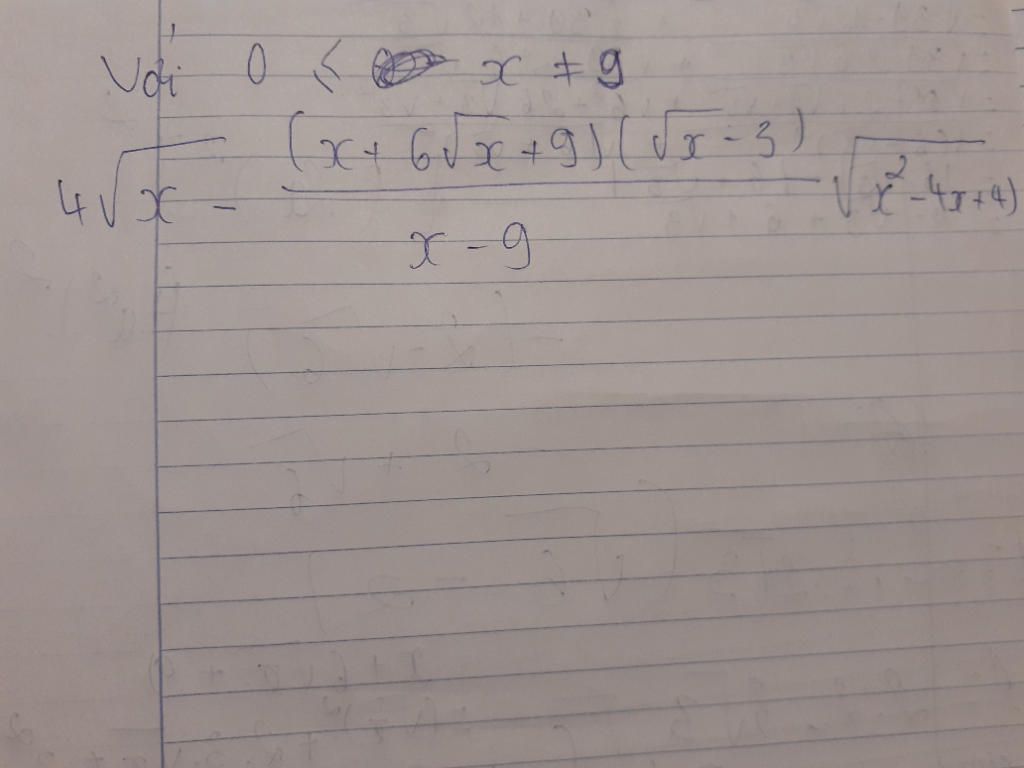 Với 0 ≤ x ≠ 9
4√x - (x + 6√x + 9)(√x - 3) / x - 9 √x² - 4x + 4)